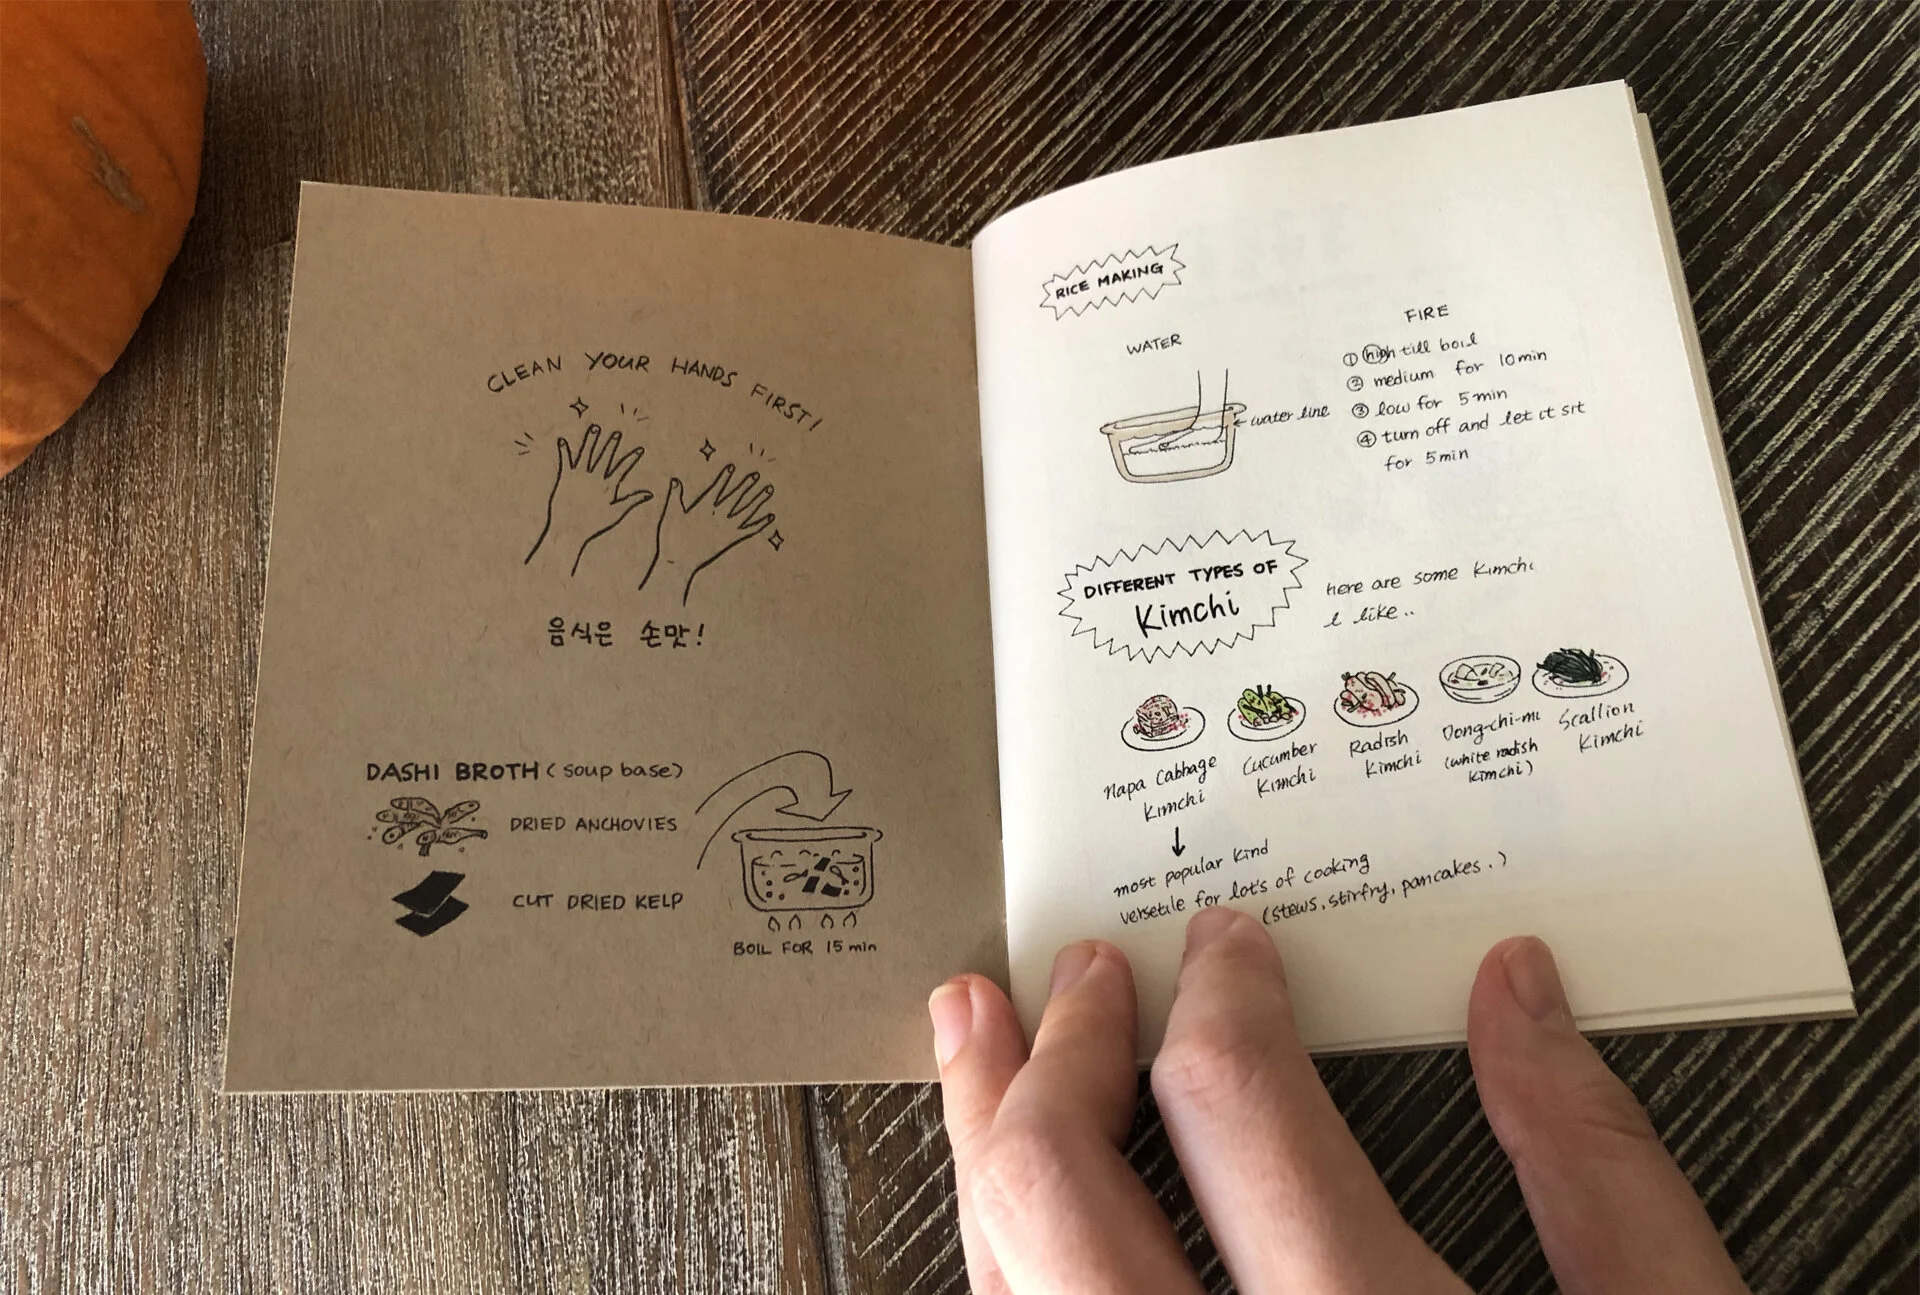 CLEAN YOUR HANDS FIRST!
음식은 손맛!
DASHI BROTH (soup base)
DRIED ANCHOVIES
CUT DRIED KELP
BOIL FOR 15 min
RICE MAKING
WATER
water line
FIRE
① high till boil
② medium for 10min
③ low for 5min
④ turn off and let it sit
for 5min
DIFFERENT TYPES OF
Kimchi
here are some Kimchi
I like..
Napa Cabbage
Kimchi
Cucumber
Kimchi
Radish
Kimchi
Dong-chi-mi
(white radish
Kimchi)
Scallion
Kimchi
most popular kind
versetile for lot's of cooking
(stews, stirfry, pancakes.)